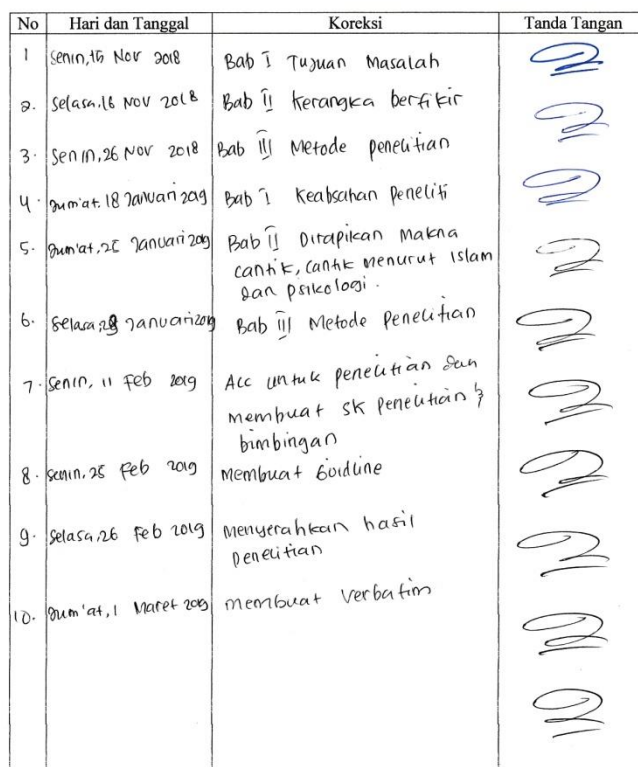 No Hari dan Tanggal Koreksi Tanda Tangan
1 Senin, 15 Nov 2018 Bab I Tujuan Masalah
2. Selasa, 16 Nov 2018 Bab II Kerangka berfikir
3. Senin, 26 Nov 2018 Bab III Metode penelitian
4. Jum'at, 18 Januari 2019 Bab I Keabsahan Peneliti
5. Jum'at, 25 Januari 2019 Bab II Dirapikan Makna
cantik, cantik menurut Islam
dan psikologi.
6. Selasa, 28 Januari 2019 Bab III Metode Penelitian
7. Senin, 11 Feb 2019 Acc untuk penelitian dan
membuat sk penelitian &
bimbingan
8. Senin, 25 Feb 2019 Membuat Goidline
9. Selasa, 26 Feb 2019 Menyerahkan hasil
penelitian
10. Jum'at, 1 Maret 2019 membuat verbatim